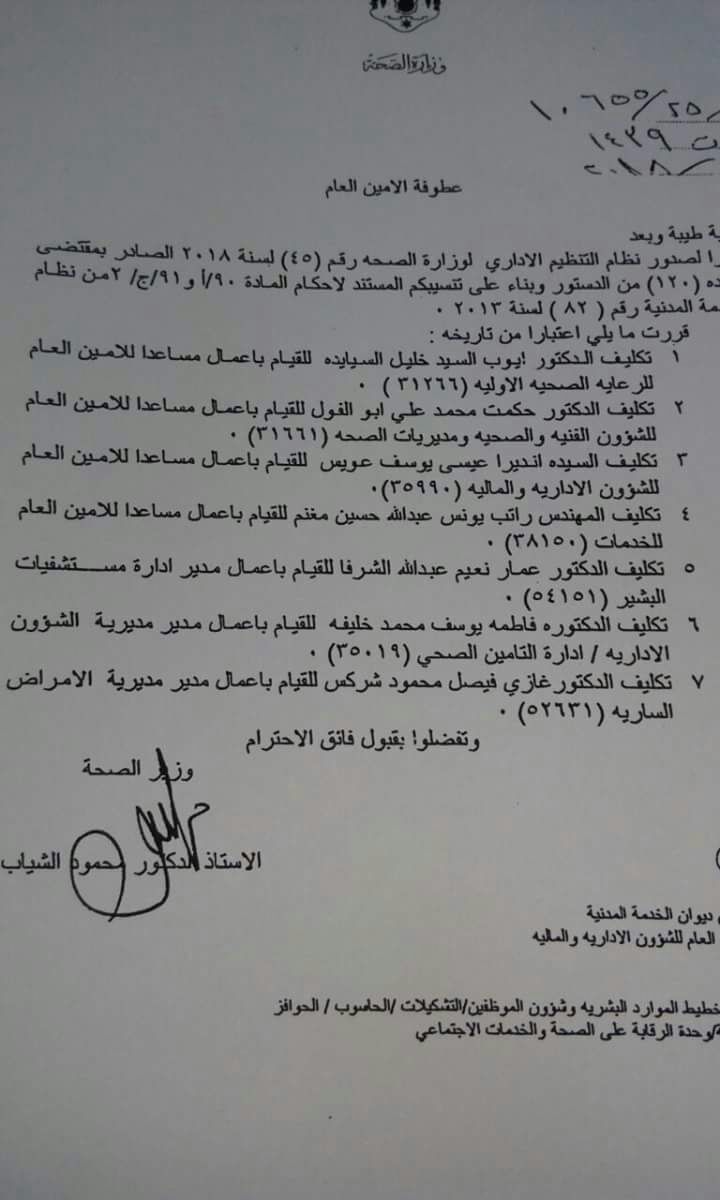 وزارة الصحة
١٠٦٥٥/٢٥/
١٤٣٩
/٢٠١٨
عطوفة الامين العام
طيبة وبعد
لصدور نظام التنظيم الاداري لوزارة الصحه رقم (٤٥) لسنة ٢٠١٨ الصادر بمقتضى
(١٢٠) من الدستور وبناء على تنسيبكم المستند لاحكام المادة ٩٠/أ و٩١/ج/ ٢من نظام
المدنية رقم ( ٨٢ ) لسنة ٢٠١٣ .
قررت ما يلي اعتبارا من تاريخه :
١ تكليف الدكتور ايوب السيد خليل السيايده للقيام باعمال مساعدا للامين العام
للرعايه الصحيه الاوليه (٣١٢٦٦ ) .
٢ تكليف الدكتور حكمت محمد علي ابو الفول للقيام باعمال مساعدا للامين العام
للشؤون الفنيه والصحيه ومديريات الصحه (٣١٦٦١) .
٣ تكليف السيده انديرا عيسى يوسف عويس للقيام باعمال مساعدا للامين العام
للشؤون الاداريه والماليه (٣٥٩٩٠).
٤ تكليف المهندس راتب يونس عبدالله حسين مغنم للقيام باعمال مساعدا للامين العام
للخدمات (٣٨١٥٠) .
٥ تكليف الدكتور عمار نعيم عبدالله الشرفا للقيام باعمال مدير ادارة مستشفيات
البشير (٥٤١٥١) .
٦ تكليف الدكتوره فاطمه يوسف محمد خليفه للقيام باعمال مدير مديرية الشؤون
الاداريه / ادارة التامين الصحي (٣٥٠١٩) .
٧ تكليف الدكتور غازي فيصل محمود شركس للقيام باعمال مدير مديرية الامراض
الساريه (٥٢٦٣١) .
وتفضلوا بقبول فائق الاحترام
وزير الصحة
الاستاذ الدكتور محمود الشياب
ديوان الخدمة المدنية
العام للشؤون الاداريه والماليه
الموارد البشريه وشؤون الموظفين/التشكيلات /الحاسوب / الحوافز
/وحدة الرقابة على الصحة والخدمات الاجتماعي